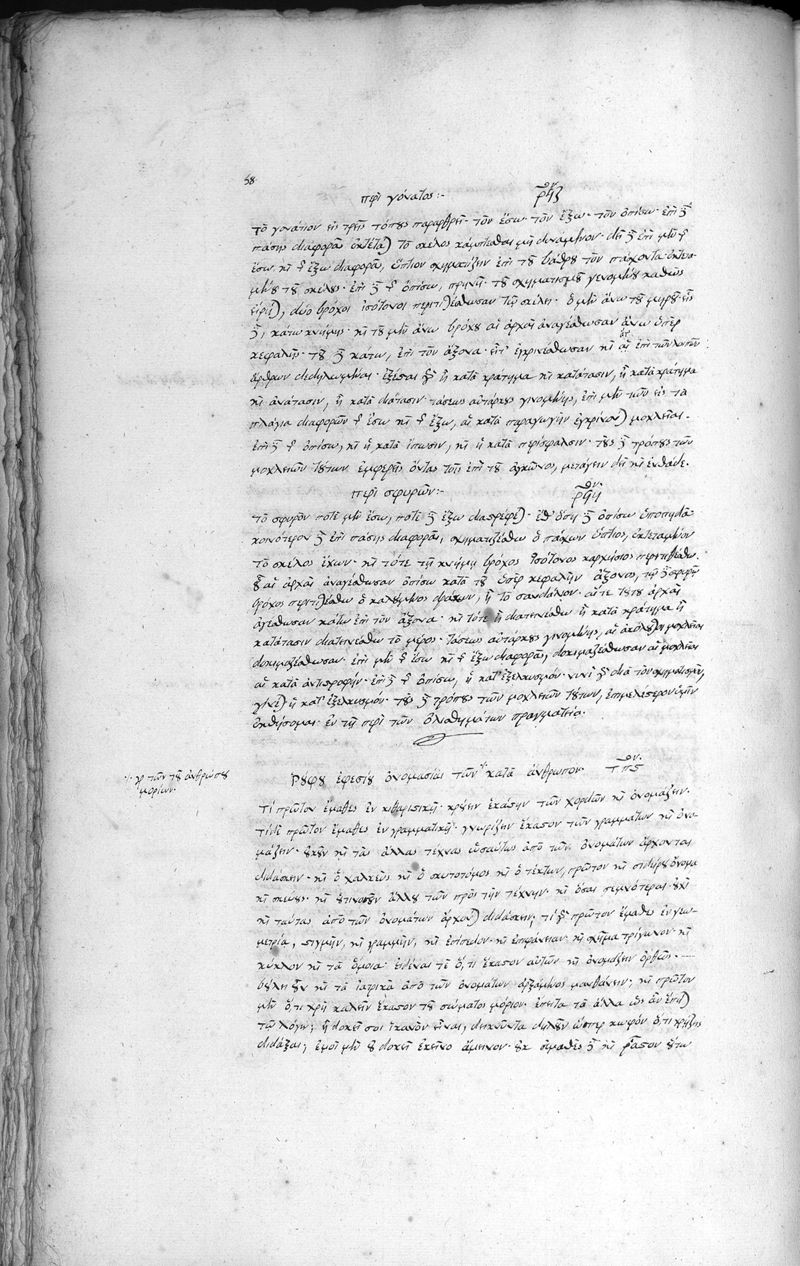 58
περὶ γόνατος:-
τὸ γονάτιον εἰς τρεῖς τόπους παραρθρεῖ· τὸν ἔσω· τὸν ἔξω· τὸν ὀπίσω· ἐπὶ δὲ
πάσης διαφορᾶς ἐκτέταται τὸ σκέλος κάμπτεσθαι μὴ δυνάμενον· δεῖ δὲ ἐπὶ μὲν τῆς
ἔσω καὶ τῆς ἔξω διαφορᾶς, ὕπτιον σχηματίζειν ἐπὶ τοῦ βάθρου τὸν πάσχοντα ἐκτετα-
μένου τοῦ σκέλους· ἐπὶ δὲ τῆς ὀπίσω, πρηνῆ· τοῦ σχηματισμοῦ γενομένου καθὼς
εἴρηται, δύο βρόχοι ἰσότονοι περιτιθέσθωσαν τῷ σκέλει· ὁ μὲν ἄνω τοῦ μηροῦ· εἷς
δὲ, κάτω κνήμης· καὶ τοῦ μὲν ἄνω βρόχου αἱ ἀρχαὶ ἀναγέσθωσαν ἄνω ὑπὲρ
κεφαλῆς· τοῦ δὲ κάτω, ἐπὶ τὸν ἄξονα· ἐγκρινέσθωσαν καὶ αἱ ἐπὶ τῶν λοιπῶν
ἄρθρων δεδηλωμέναι· ἔξεστι γὰρ ἢ κατὰ κράτημα καὶ κατάτασιν, ἢ κατὰ κράτημα
καὶ ἀνάτασιν, ἢ κατὰ διάτασιν· τάσεως αὐτάρκους γινομένης, ἐπὶ μὲν τῶν εἰς τὰ
πλάγια διαφορῶν τῆς ἔσω καὶ τῆς ἔξω, αἱ κατὰ παραγωγὴν ἐγκρίνονται μοχλεῖαι·
ἐπὶ δὲ τῆς ὀπίσω, καὶ ἡ κατὰ ἵπωσιν, καὶ ἡ κατὰ περίσφαλσιν· τοὺς δὲ τρόπους τῶν
μοχλειῶν τούτων ἐμφερεῖς ὄντας τοῖς ἐπὶ τοῦ ἀγκῶνος, μετάγειν δεῖ καὶ ἐνθάδε·
περὶ σφυρῶν:-
τὸ σφυρὸν ποτὲ μὲν ἔσω, ποτὲ δὲ ἔξω διαστρέφεται· ἔσθ' ὅτε δὲ ὀπίσω ὑποπηδᾷ·
κοινότερον δὲ ἐπὶ πάσης διαφορᾶς, σχηματιζέσθω ὁ πάσχων ὕπτιος, ἐκτεταμένον
τὸ σκέλος ἔχων· καὶ τότε τῇ κνήμῃ βρόχος ἰσότονος καρχήσιος περιτιθέσθω·
οὗ αἱ ἀρχαὶ ἀναγέσθωσαν ὀπίσω κατὰ τοῦ ὑπὲρ κεφαλὴν ἄξονος, τῷ δὲ σφυρῷ
βρόχος περιτιθέσθω ὁ καλούμενος δράκων, ἢ τὸ σανδάλιον· αἵ τε τούτου ἀρχαὶ
ἀγέσθωσαν κάτω ἐπὶ τὸν ἄξονα· καὶ τότε ἢ διατεινέσθω ἢ κατὰ κράτημα ἢ
κατάτασιν διατεινέσθω τὸ μέρος· τάσεως αὐτάρκους γινομένης, αἱ ἀκόλουθοι μοχλεῖαι
δοκιμαζέσθωσαν· ἐπὶ μὲν τῆς ἔσω καὶ τῆς ἔξω διαφορᾶς, δοκιμαζέσθωσαν αἱ μοχλεῖαι
αἱ κατὰ ἀντιστροφήν· ἐπὶ δὲ τῆς ὀπίσω, ἡ κατ' ἐξελκυσμόν· νυνὶ γὰρ διὰ τὸν σχηματισμὸν,
γίνεται ἡ κατ' ἐξελκυσμόν· τοὺς δὲ τρόπους τῶν μοχλειῶν τούτων, ἐπιμελέστερον ὑμῖν
ἐκθήσομαι· ἐν τῇ περὶ τῶν ὀλισθημάτων πραγματείᾳ·
γρ τῶν τοῦ ἀνθρώπου
μορίων·
Ρούφου ἐφεσίου ὀνομασίαι τῶν κατὰ ἄνθρωπον·
Τί πρῶτον ἔμαθες ἐν κιθαριστικῇ· κρούειν ἑκάστην τῶν χορδῶν καὶ ὀνομάζειν·
τί δὲ πρῶτον ἔμαθες ἐν γραμματικῇ· γνωρίζειν ἕκαστον τῶν γραμμάτων καὶ ὀνο-
μάζειν· οὐκοῦν καὶ τὰς ἄλλας τέχνας ὡσαύτως ἀπὸ τῶν ὀνομάτων ἄρχονται
διδάσκειν· καὶ ὁ χαλκεὺς καὶ ὁ σκυτοτόμος καὶ ὁ τέκτων, πρῶτον καὶ σιδήρου ὄνομα
καὶ σκεύους· καὶ οὑτινοσοῦν ἄλλου τῶν πρὸς τὴν τέχνην· καὶ ὅσαι σεμνότεραι· οὐχὶ
καὶ ταύτας ἀπὸ τῶν ὀνομάτων ἄρχονται διδάσκειν; τί γὰρ πρῶτον ἔμαθες ἐν γεω-
μετρίᾳ, στιγμὴν, καὶ γραμμὴν, καὶ ἐπίπεδον· καὶ ἐπιφάνειαν· καὶ σχῆμα τρίγωνον· καὶ
κύκλον καὶ τὰ ὅμοια· εἰδέναι τε ὅ,τι ἕκαστον αὐτῶν καὶ ὀνομάζειν ὀρθῶς·
βούλει οὖν καὶ τὰ ἰατρικὰ ἀπὸ τῶν ὀνομάτων ἀρξάμενος μανθάνειν; καὶ πρῶτον
μὲν ὅ,τι χρὴ καλεῖν ἕκαστον τοῦ σώματος μόριον· ἔπειτα τὰ ἄλλα ὡς ἂν ἕπηται
τῷ λόγῳ; ἢ δοκεῖ σοι ἱκανὸν εἶναι, δεικνύντα δηλοῦν ὥσπερ κωφὸν ὅ,τι χρῄζεις
διδάξαι; ἐμοὶ μὲν οὐ δοκεῖ ἐκεῖνο ἄμεινον· οὐκ εὐμαθὲς δὲ καὶ ῥᾷστον οὕτω